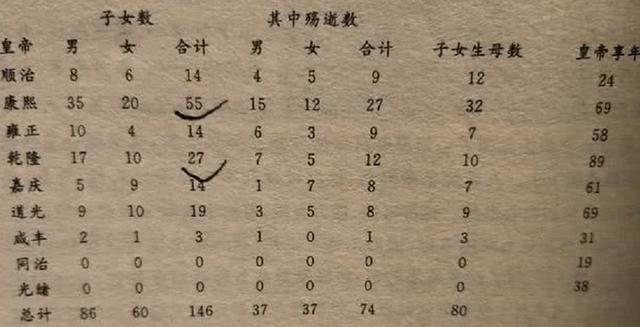 子女数 其中殇逝数
皇帝 男 女 合计 男 女 合计 子女生母数 皇帝享年
顺治 8 6 14 4 5 9 12 24
康熙 35 20 55 15 12 27 32 69
雍正 10 4 14 6 3 9 7 58
乾隆 17 10 27 7 5 12 10 89
嘉庆 5 9 14 1 7 8 7 61
道光 9 10 19 3 5 8 9 69
咸丰 2 1 3 1 0 1 3 31
同治 0 0 0 0 0 0 0 19
光绪 0 0 0 0 0 0 0 38
总计 86 60 146 37 37 74 80